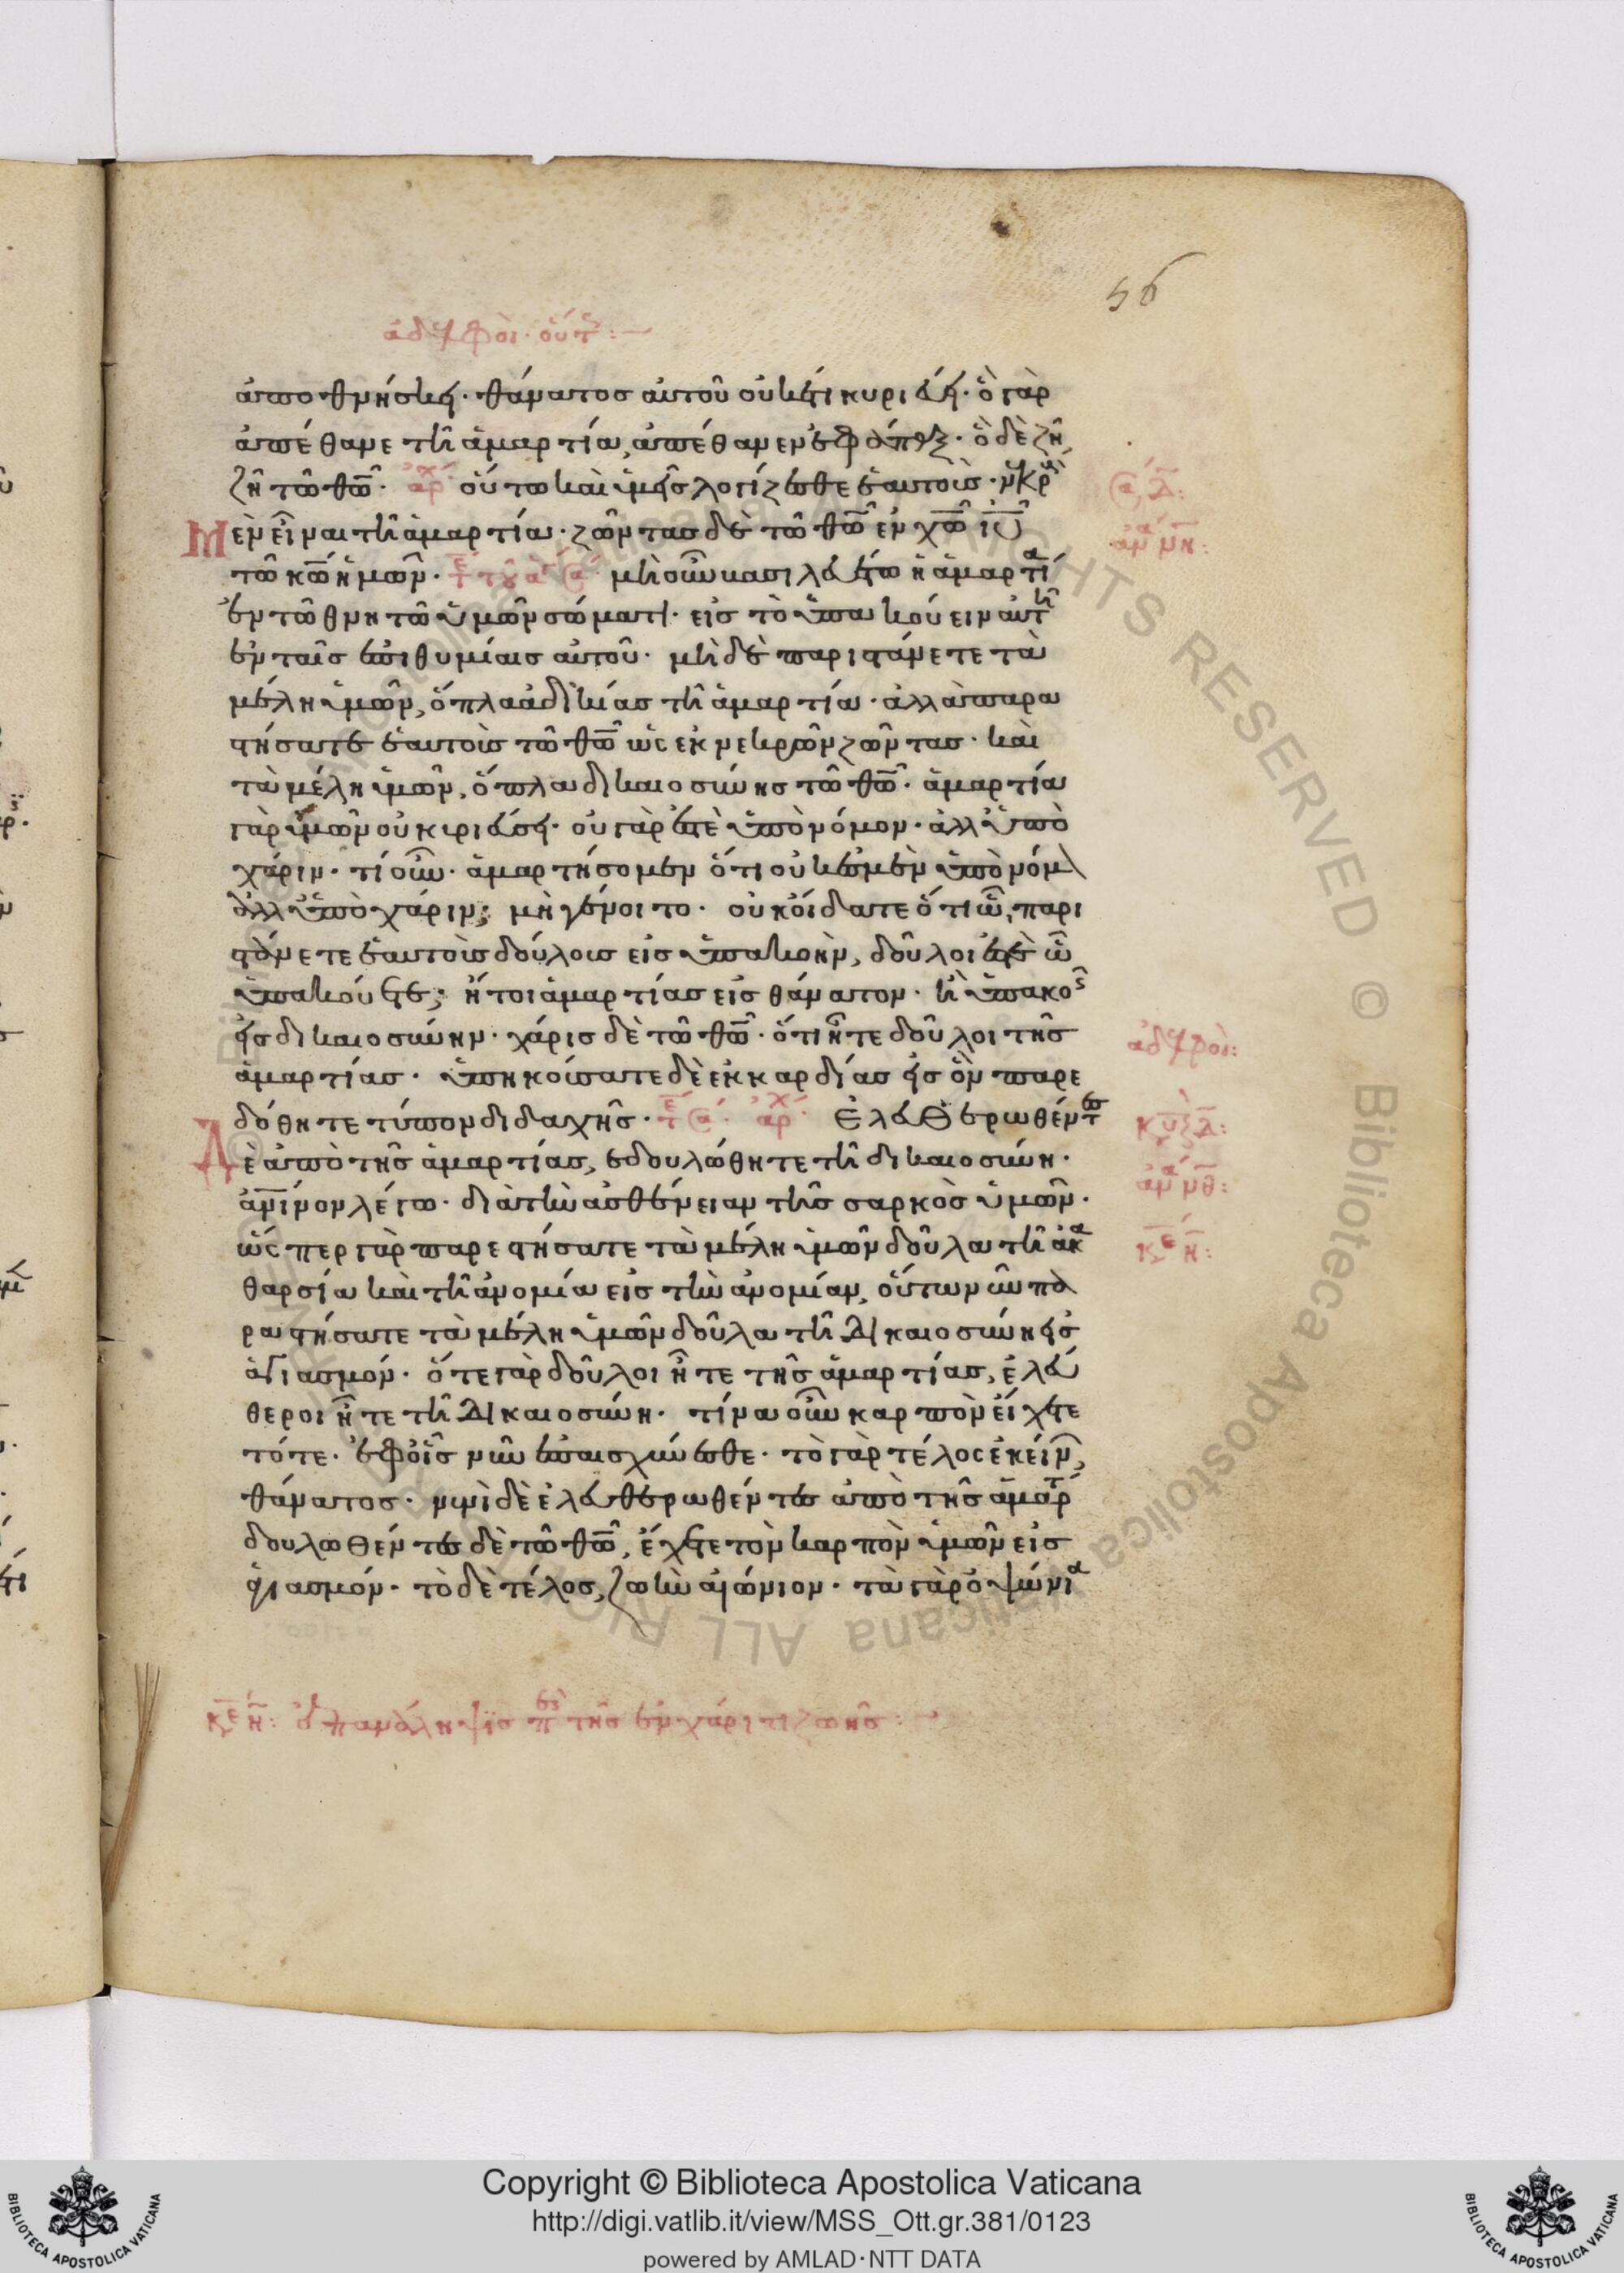 56
ἀδελφοὶ. οὕτ :-
ἀποθνήσκει. θάνατος αὐτοῦ οὐκέτι κυριεύει. ὃ γὰρ
ἀπέθανε τῆ ἁμαρτία, ἀπέθανεν ἐφάπαξ. ὃ δὲ ζῆ,
ζῆ τῶ θῶ. ἀρχ οὕτω καὶ ὑμεῖς λογίζεσθε ἑαυτοὺς. νεκρ
μὲν εἶναι τῆ ἁμαρτία. ζῶντας δὲ τῶ θῶ ἐν χῶ ἰῦ
τῶ κῶ ἡμῶν. μὴ οὖν βασιλευέτω ἡ ἁμαρτί
ἐν τῶ θνητῶ ὑμῶν σώματι. εἰς τὸ ὑπακούειν αὐτῆ
ἐν ταῖς ἐπιθυμίαις αὐτοῦ. μὴ δὲ παριστάνετε τὰ
μέλη ὑμῶν, ὅπλα ἀδικίας τῆ ἁμαρτία. ἀλλὰ παρα
στήσατε ἑαυτοὺς τῶ θῶ ὡς ἐκ νεκρῶν ζῶντας. καὶ
τὰ μέλη ὑμῶν, ὅπλα δικαιοσύνης τῶ θῶ. ἁμαρτία
γὰρ ὑμῶν οὐ κυριεύσει. οὐ γὰρ ἐστὲ ὑπὸ νόμον. ἀλλ ὑπὸ
χάριν. τί οὖν. ἁμαρτήσομεν ὅτι οὐκ ἐσμὲν ὑπὸ νόμ
ἀλλ ὑπὸ χάριν; μὴ γένοιτο. οὐκ οἴδατε ὅτι ὧ, παρι
στάνετε ἑαυτοὺς δούλους εἰς ὑπακοὴν, δοῦλοι ἐστὲ ὧ
ὑπακούετε; ἤτοι ἁμαρτίας εἰς θάνατον. ἢ ὑπακο
εἰς δικαιοσύνην. χάρις δὲ τῶ θῶ. ὅτι ἦτε δοῦλοι τῆς
ἁμαρτίας. ὑπηκούσατε δὲ ἐκ καρδίας εἰς ὃν παρε
δόθητε τύπον διδαχῆς. ἀρχ Ἐλευθερωθέντες
δὲ ἀπὸ τῆς ἁμαρτίας, ἐδουλώθητε τῆ δικαιοσύνη.
ἀνινον λέγω. διὰ τὴν ἀσθένειαν τῆς σαρκὸς ὑμῶν.
ὥσπερ γὰρ παρεστήσατε τὰ μέλη ὑμῶν δοῦλα τῆ ἀκα
θαρσία καὶ τῆ ἀνομία εἰς τὴν ἀνομίαν, οὕτω νῦν πα
ραστήσατε τὰ μέλη ὑμῶν δοῦλα τῆ δικαιοσύνη εἰς
ἁγιασμόν. ὅτε γὰρ δοῦλοι ἦτε τῆς ἁμαρτίας, ἐλεύ
θεροι ἦτε τῆ δικαιοσύνη. τίνα οὖν καρπὸν εἴχετε
τότε. ἐφ οἷς νῦν ἐπαισχύνεσθε. τὸ γὰρ τέλος ἐκείν,
θάνατος. νυνὶ δὲ ἐλευθερωθέντες ἀπὸ τῆς ἁμαρτ
δουλωθέντες δὲ τῶ θῶ, ἔχετε τὸν καρπὸν ὑμῶν εἰς
ἁγιασμόν. τὸ δὲ τέλος, ζωὴν αἰώνιον. τὰ γὰρ ὀψώνια
ἀδελφοὶ:
κε η: ἐπανάληψις π τῆς ἐν χάριτι ζωῆς :-
Copyright © Biblioteca Apostolica Vaticana
http://digi.vatlib.it/view/MSS_Ott.gr.381/0123
powered by AMLAD·NTT DATA
BIBLIOTECA APOSTOLICA VATICANA
BIBLIOTECA APOSTOLICA VATICANA